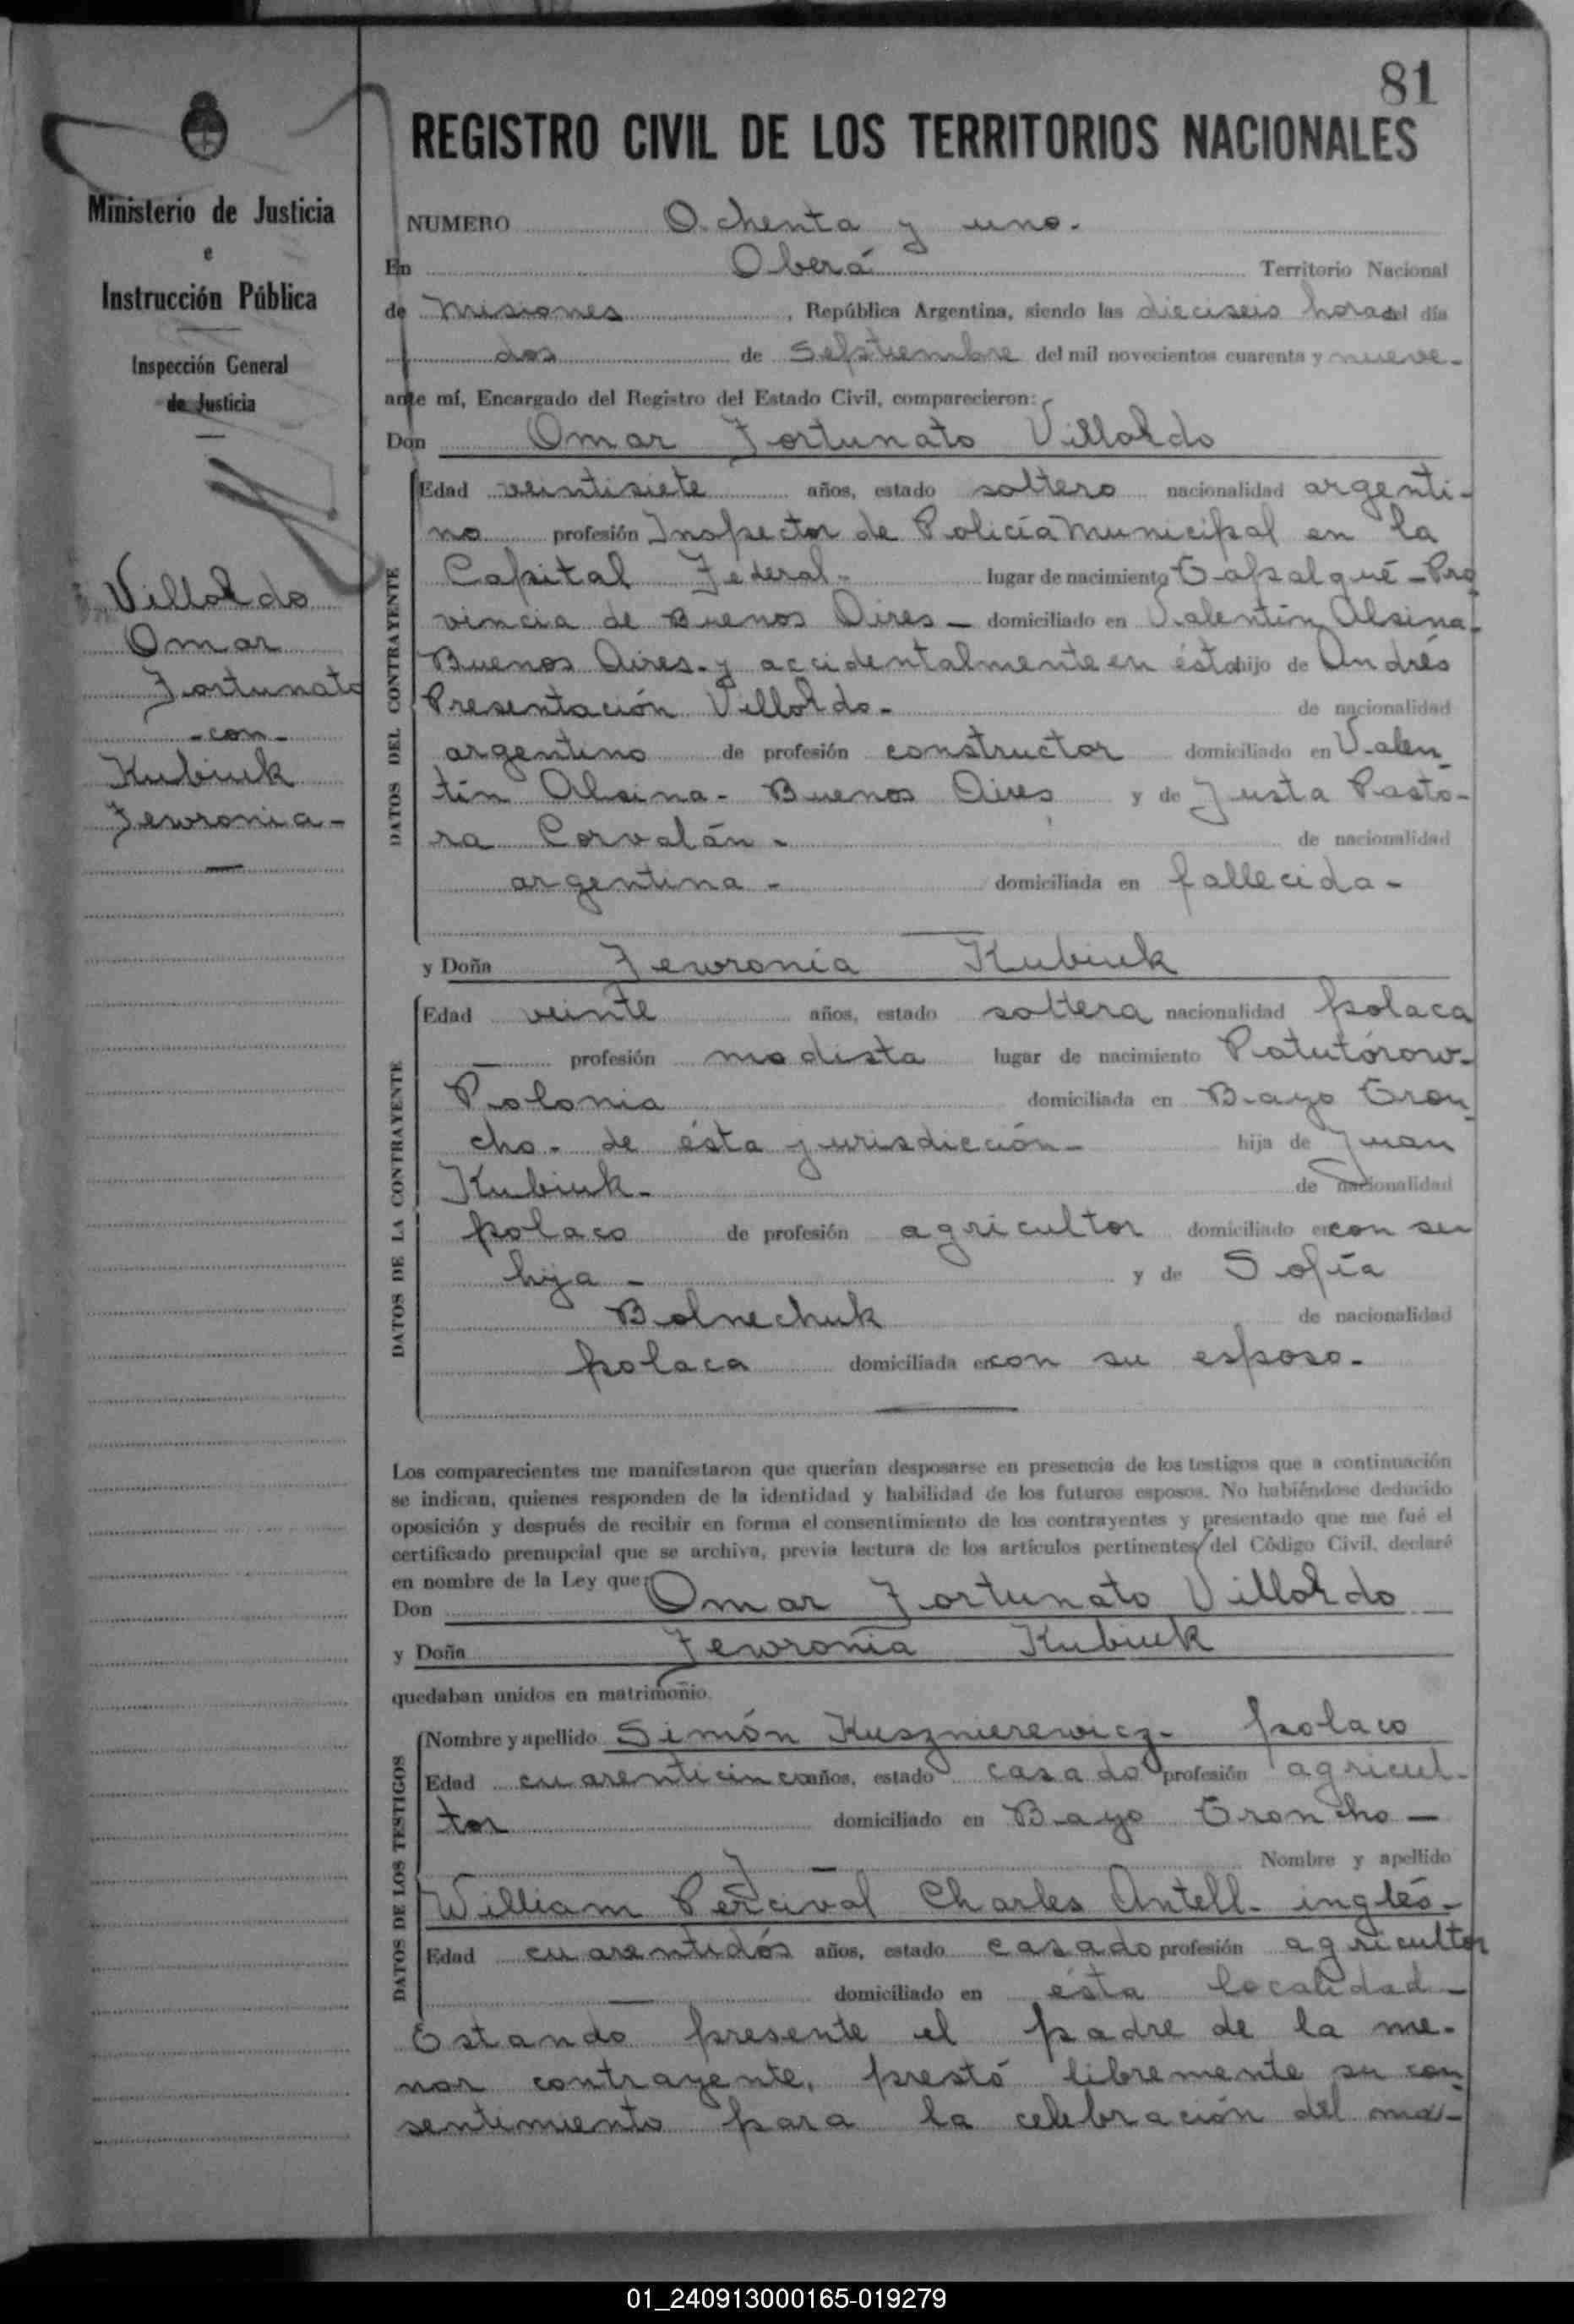 81
REGISTRO CIVIL DE LOS TERRITORIOS NACIONALES
Ministerio de Justicia
e
Instrucción Pública
Inspección General
de Justicia
Villoldo
Omar
Fortunato
-con-
Kubiuk
Jewronia-
NUMERO Ochenta y uno.
En Oberá Territorio Nacional
de Misiones, República Argentina, siendo las dieciseis horas del día
dos de Sepstiembre del mil novecientos cuarenta y nueve-
ante mí, Encargado del Registro del Estado Civil, comparecieron:
Don Omar Fortunato Villoldo
DATOS DEL CONTRAYENTE
Edad veintisiete años, estado soltero nacionalidad argenti-
no profesión Inspector de Policía Municipal en la
Capital Federal- lugar de nacimiento Tapalqué - Pro
vincia de Buenos Aires - domiciliado en Valentín Alsina-
Buenos Aires- y accidentalmente en ésta hijo de Andrés
Presentación Villoldo- de nacionalidad
argentino de profesión constructor domiciliado en Valen
tín Alsina- Buenos Aires y de Justa Pasto-
ra Corvalán- de nacionalidad
argentina- domiciliada en fallecida-
y Doña Jewronia Kubiuk
DATOS DE LA CONTRAYENTE
Edad veinte años, estado soltera nacionalidad polaca
profesión modista lugar de nacimiento Patutórow-
Polonia domiciliada en Bayo Tron
cho- de ésta jurisdicción- hija de Juan
Kubiuk- de nacionalidad
polaco de profesión agricultor domiciliado en con su
hija - y de Sofía
Bolnechuk de nacionalidad
polaca domiciliada en con su esposo-
Los comparecientes me manifestaron que querían desposarse en presencia de los testigos que a continuación
se indican, quienes responden de la identidad y habilidad de los futuros esposos. No habiéndose deducido
oposición y después de recibir en forma el consentimiento de los contrayentes y presentado que me fué el
certificado prenupcial que se archiva, previa lectura de los artículos pertinentes del Código Civil, declaré
en nombre de la Ley que:
Don Omar Fortunato Villoldo
y Doña Jewronia Kubiuk
quedaban unidos en matrimonio.
DATOS DE LOS TESTIGOS
Nombre y apellido Simón Kusznierewicz- polaco
Edad cuarenticinco años, estado casado profesión agricul-
tor domiciliado en Bayo Troncho -
Nombre y apellido
William Percival Charles Antell- inglés-
Edad cuarentidós años, estado casado profesión agricultor
domiciliado en ésta localidad-
Estando presente el padre de la me-
nor contrayente, prestó libremente su con
sentimiento para la celebración del ma-
01_240913000165-019279